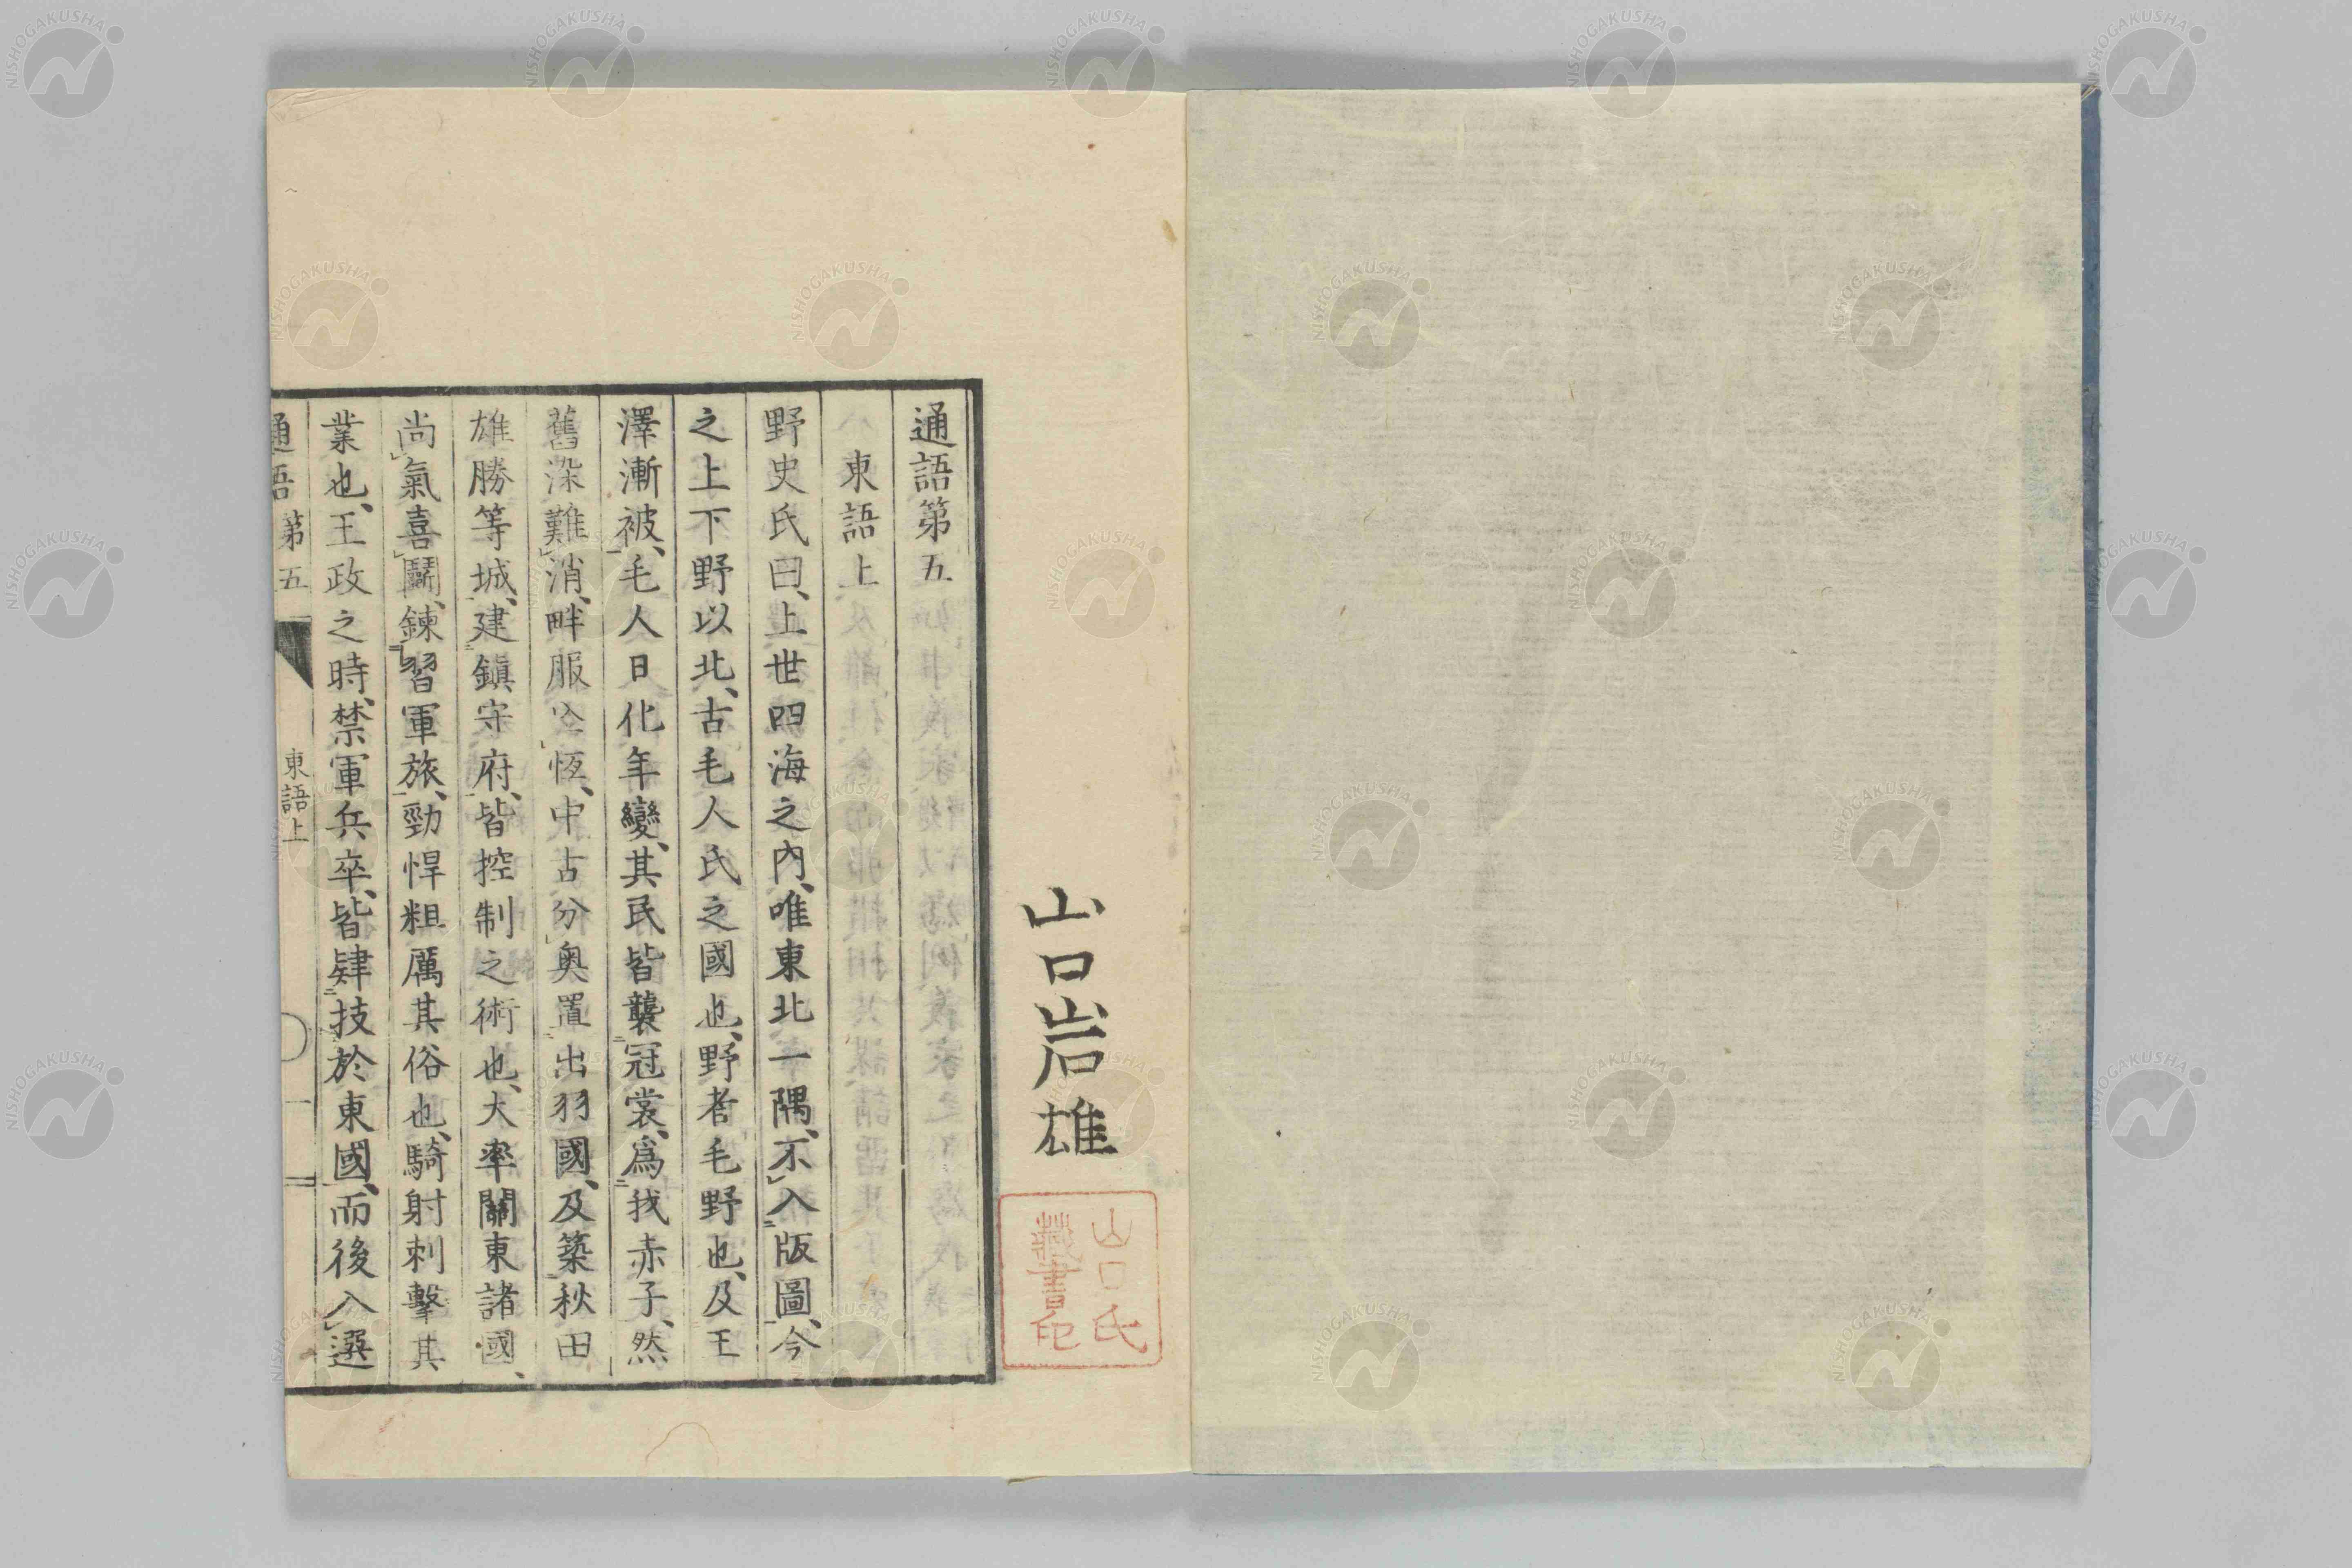 山口岩雄
山口氏
藏書印
通語第五
東語上
野史氏曰、上世四海之內、唯東北一隅、不入版圖、今
之上下野以北、古毛人氏之國也、野者毛野也、及王
澤漸被、毛人日化年變、其民皆襲冠裳、爲我赤子、然
舊染難消、畔服不恆、中古分奧置出羽國、及築秋田
雄勝等城、建鎮守府、皆控制之術也、大率關東諸國、
尚氣喜鬪、鍊習軍旅、勁悍粗厲其俗也、騎射刺擊其
業也、王政之時、禁軍兵卒、皆肄技於東國、而後入選
通語第五
東語上
一
NISHOGAKUSHA